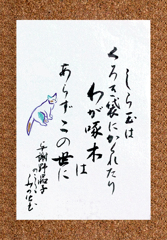 しら玉は
くろき袋にかくれたり
わが啄木
は
あらずこの世に
与謝野晶子